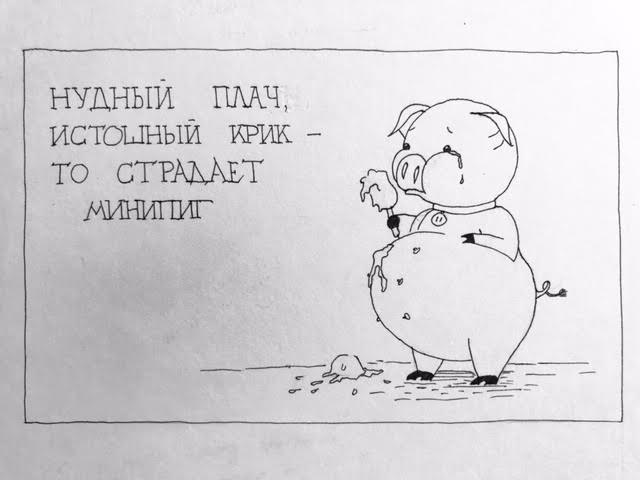 НУДНЫЙ ПЛАЧ,
ИСТОШНЫЙ КРИК –
ТО СТРАДАЕТ
МИНИПИГ